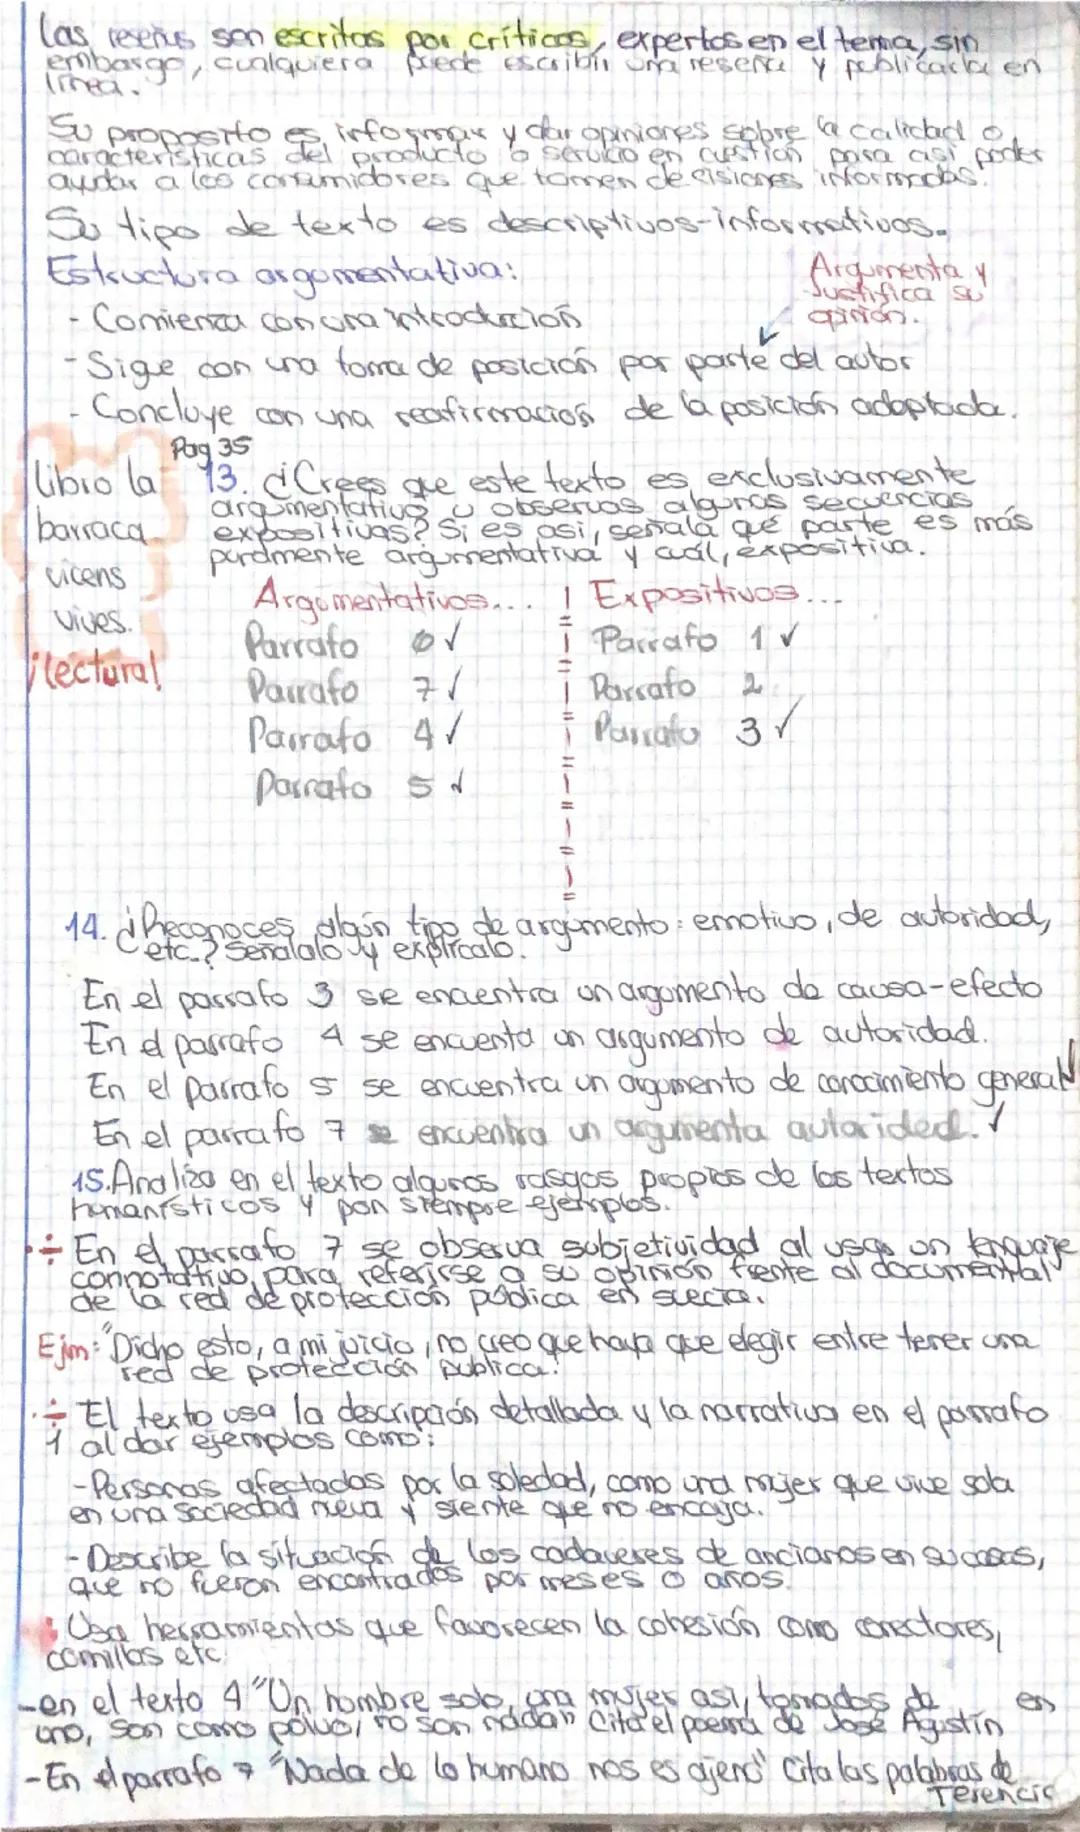 las reseñas son escritas por críticos, expertos en el tema, sin
embargo, cualquiera puede escribir una reseña y publicarla en
línea.
Su proposito es informar y dar opiniones sobre la calidad o
características del producto o servicio en cuestión para así poder
ayudar a los consumidores que tomen decisiones informadas.
Su tipo de texto es descriptivos-informativos.
Estructura argomentativa:
Argumenta y
Justifica su
opinión.
- Comienza con una introducción
- Sigue con una toma de posición por parte del autor
- Concluye con una reafirmación de la posición adoptada.
Pag 35
libro la
barraca
vicens
vives.
¡lectura!
13. ¿Crees que este texto es exclusivamente
argumentativo u observas algunas secuencias
expositivas? Si es así, señala qué parte es más
puramente argumentativa y cuál, expositiva.
Argomentativos... Expositivos...
Parrafo 6 ✓ Parrafo 1 ✓
Parrafo 7 ✓ Parrafo 2
Parrafo 4 ✓ Parrafo 3 ✓
Parrafo 5 ✓
14. ¿Reconoces algún tipo de argumento: emotivo, de autoridad,
etc.? Señálalo y explícalo.
En el parrafo 3 se encuentra un argumento de causa-efecto
En el parrafo 4 se encuenta un argumento de autoridad.
En el parrafo 5 se encuentra un argumento de conocimiento general ✓
En el parrafo 7 se encuentra un argumenta autoridad. ✓
15. Analiza en el texto algunos rasgos propios de los textos
humanísticos y pon siempre ejemplos.
÷ En el parrafo 7 se observa subjetividad al usar un lenguaje
connotativo para referirse a su opinión frente al documental
de la red de protección pública en suecia.
Ejm: "Dicho esto, a mi juicio, no creo que haya que elegir entre tener una
red de protección pública."
÷ El texto usa la descripción detallada y la narrativa en el parrafo
1 al dar ejemplos como:
- Personas afectadas por la soledad, como una mujer que vive sola
en una sociedad nueva y siente que no encaja.
- Describe la situación de los cadaveres de ancianos en su casas,
que no fueron encontrados por meses o años
: Usa herramientas que favorecen la cohesión como conectores,
comillas etc.
- en el texto 4 "Un hombre solo, una mujer así, tomados de en
uno, son como polvo, no son nada" Cita el poema de José Agustín
- En el parrafo 7 "Nada de lo humano nos es ajeno" Cita las palabras de
Terencio